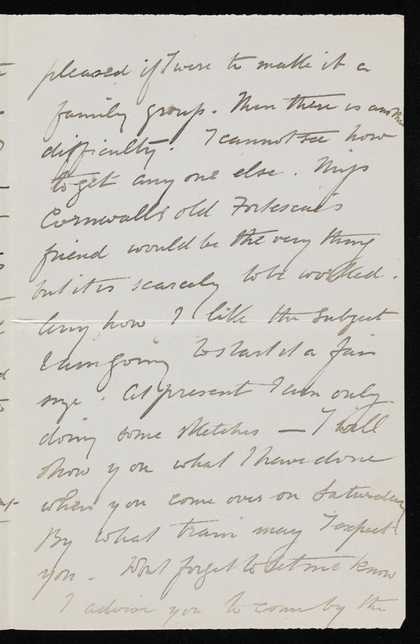 pleased if I were to make it a
family group. Then there is another
difficulty. I cannot see how
to get any one else. Miss
Cornwalls old Fortescue's
friend would be the very thing
but it is scarcely to be worked.
Any how I like the subject
& am going to start it a fair
size. At present I am only
doing some sketches — I will
show you what I have done
when you come over on Saturday
By what train may I expect
you. Dont forget to let me know
I advise you to come by the